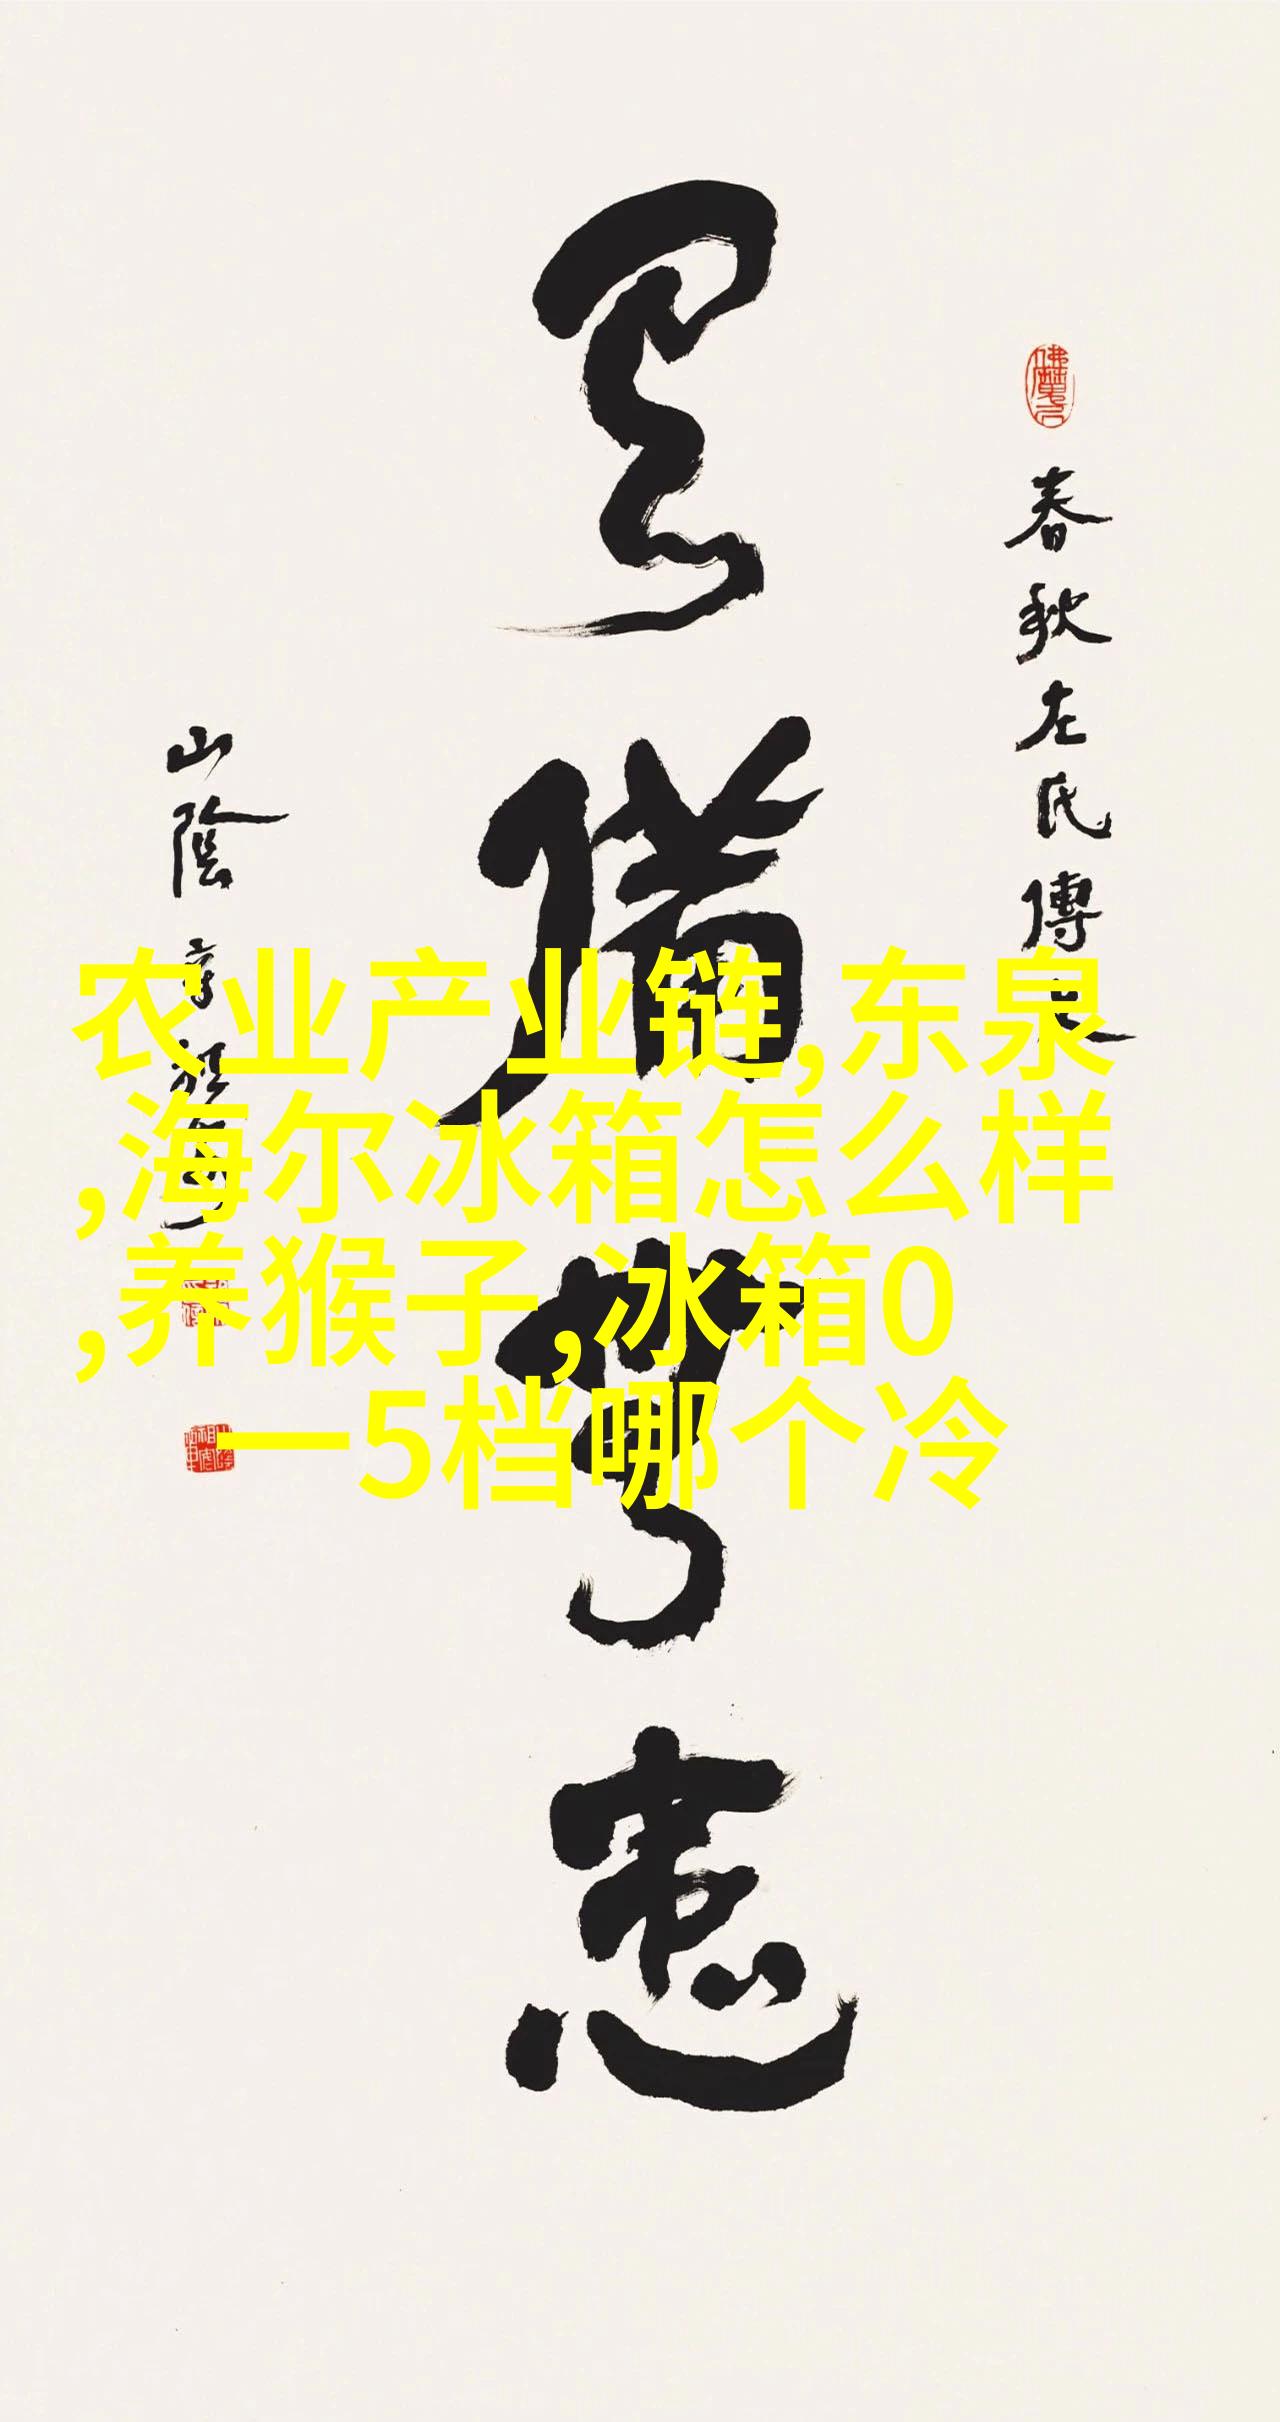 春秋左氏傳
有備無患
山陰
农业产业链,东泉
,海尔冰箱怎么样
,养猴子,冰箱0
一5档哪个冷